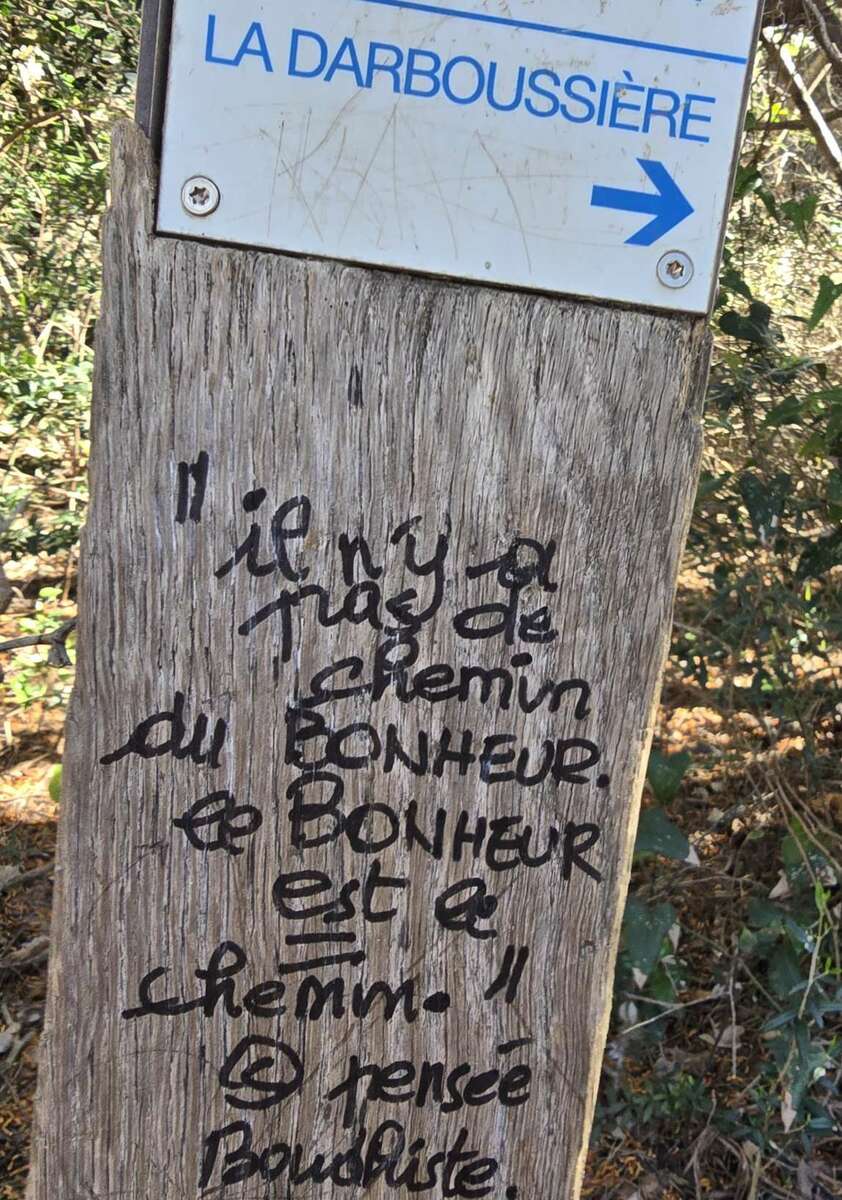 LA DARBOUSSIÈRE
" il n'y a
pas de
chemin
du BONHEUR.
le BONHEUR
est le
chemin. "
© pensée
Boudhiste.